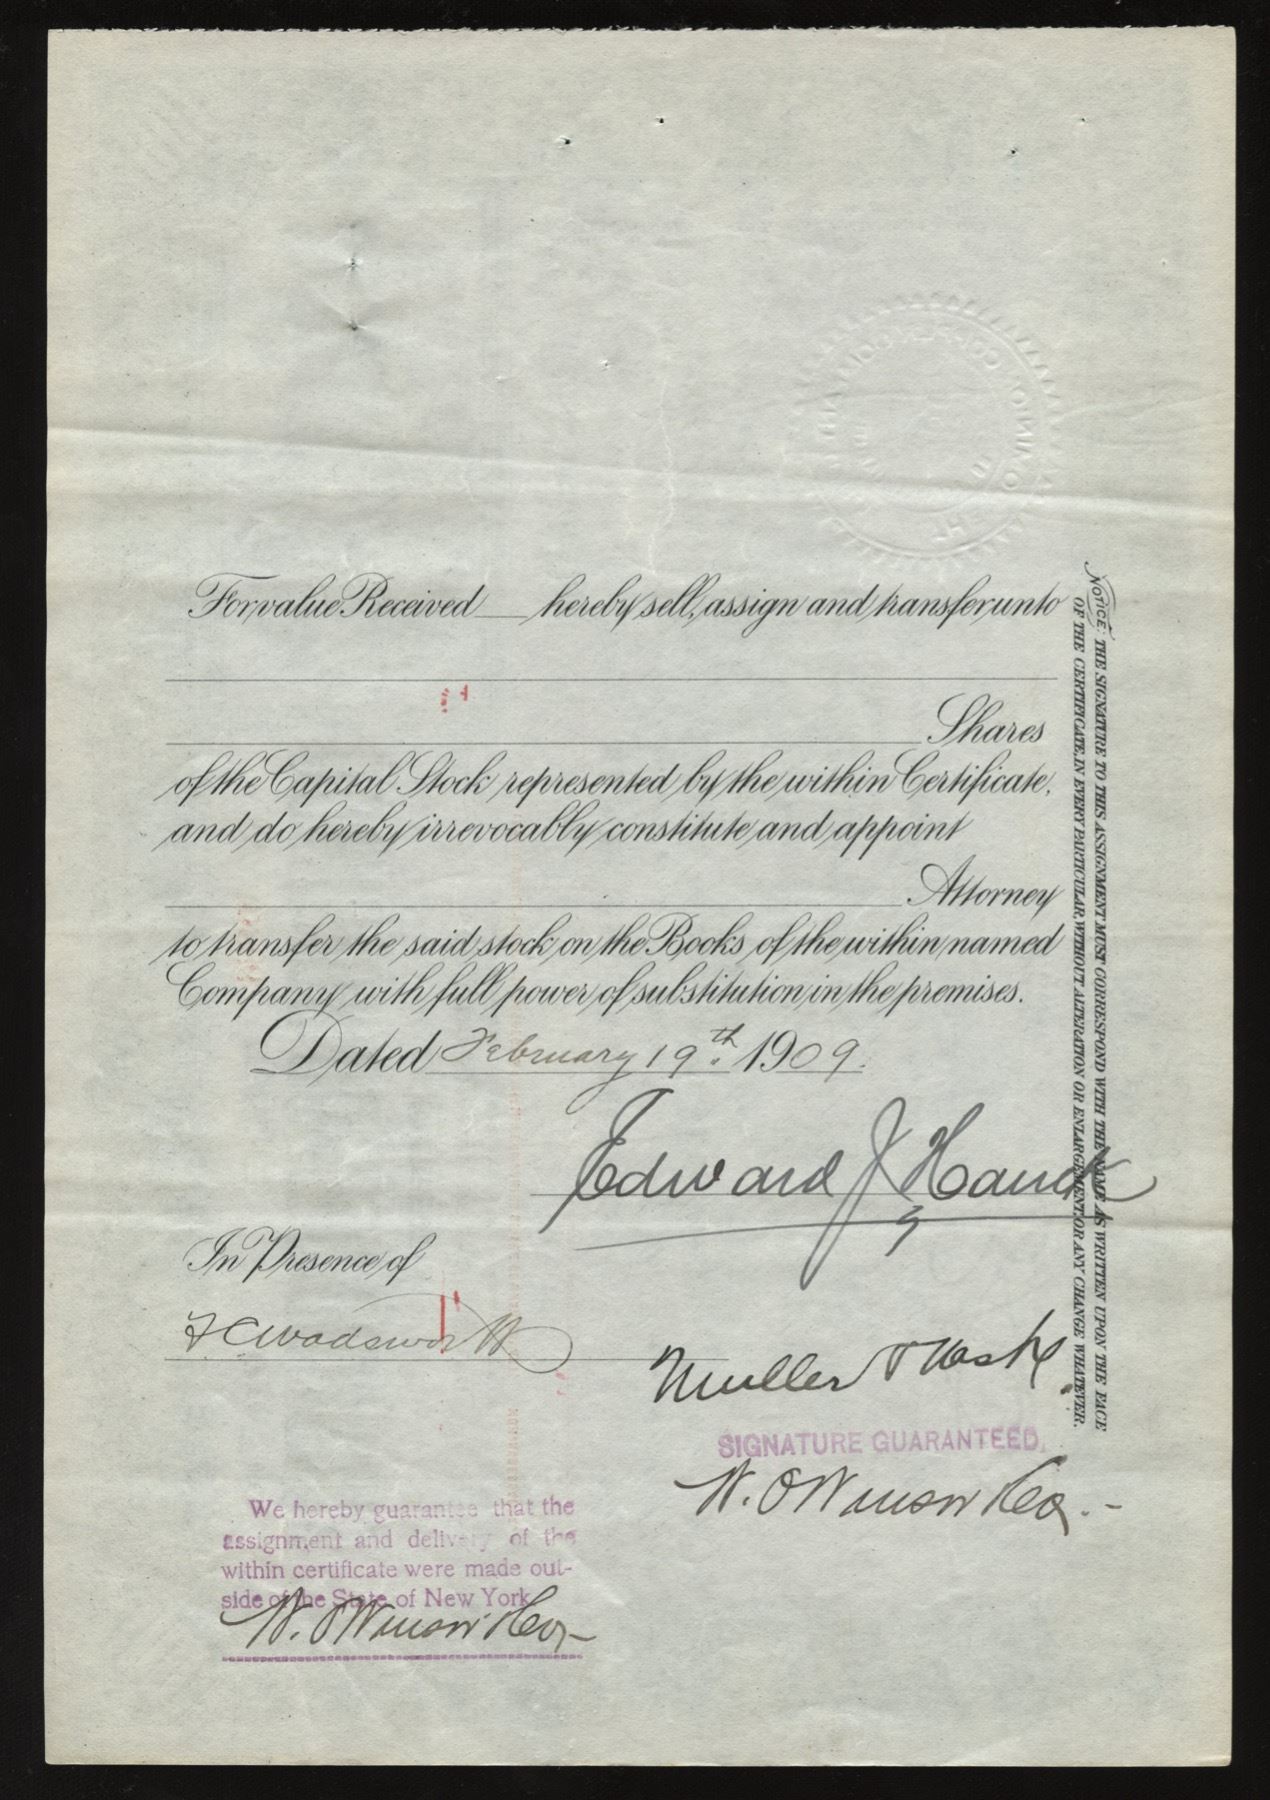 For value Received hereby sell, assign and transfer unto
Shares
of the Capital Stock represented by the within Certificate,
and do hereby irrevocably constitute and appoint
Attorney
to transfer the said stock on the Books of the within named
Company with full power of substitution in the premises.
Dated February 19th. 1909.
Edward J Hauck
In Presence of
F C Wadsworth
Muller & Nash
SIGNATURE GUARANTEED.
We hereby guarantee that the
assignment and delivery of the
within certificate were made out-
side of the State of New York
NOTICE: THE SIGNATURE TO THIS ASSIGNMENT MUST CORRESPOND WITH THE NAME AS WRITTEN UPON THE FACE
OF THE CERTIFICATE, IN EVERY PARTICULAR, WITHOUT ALTERATION OR ENLARGEMENT, OR ANY CHANGE WHATEVER.